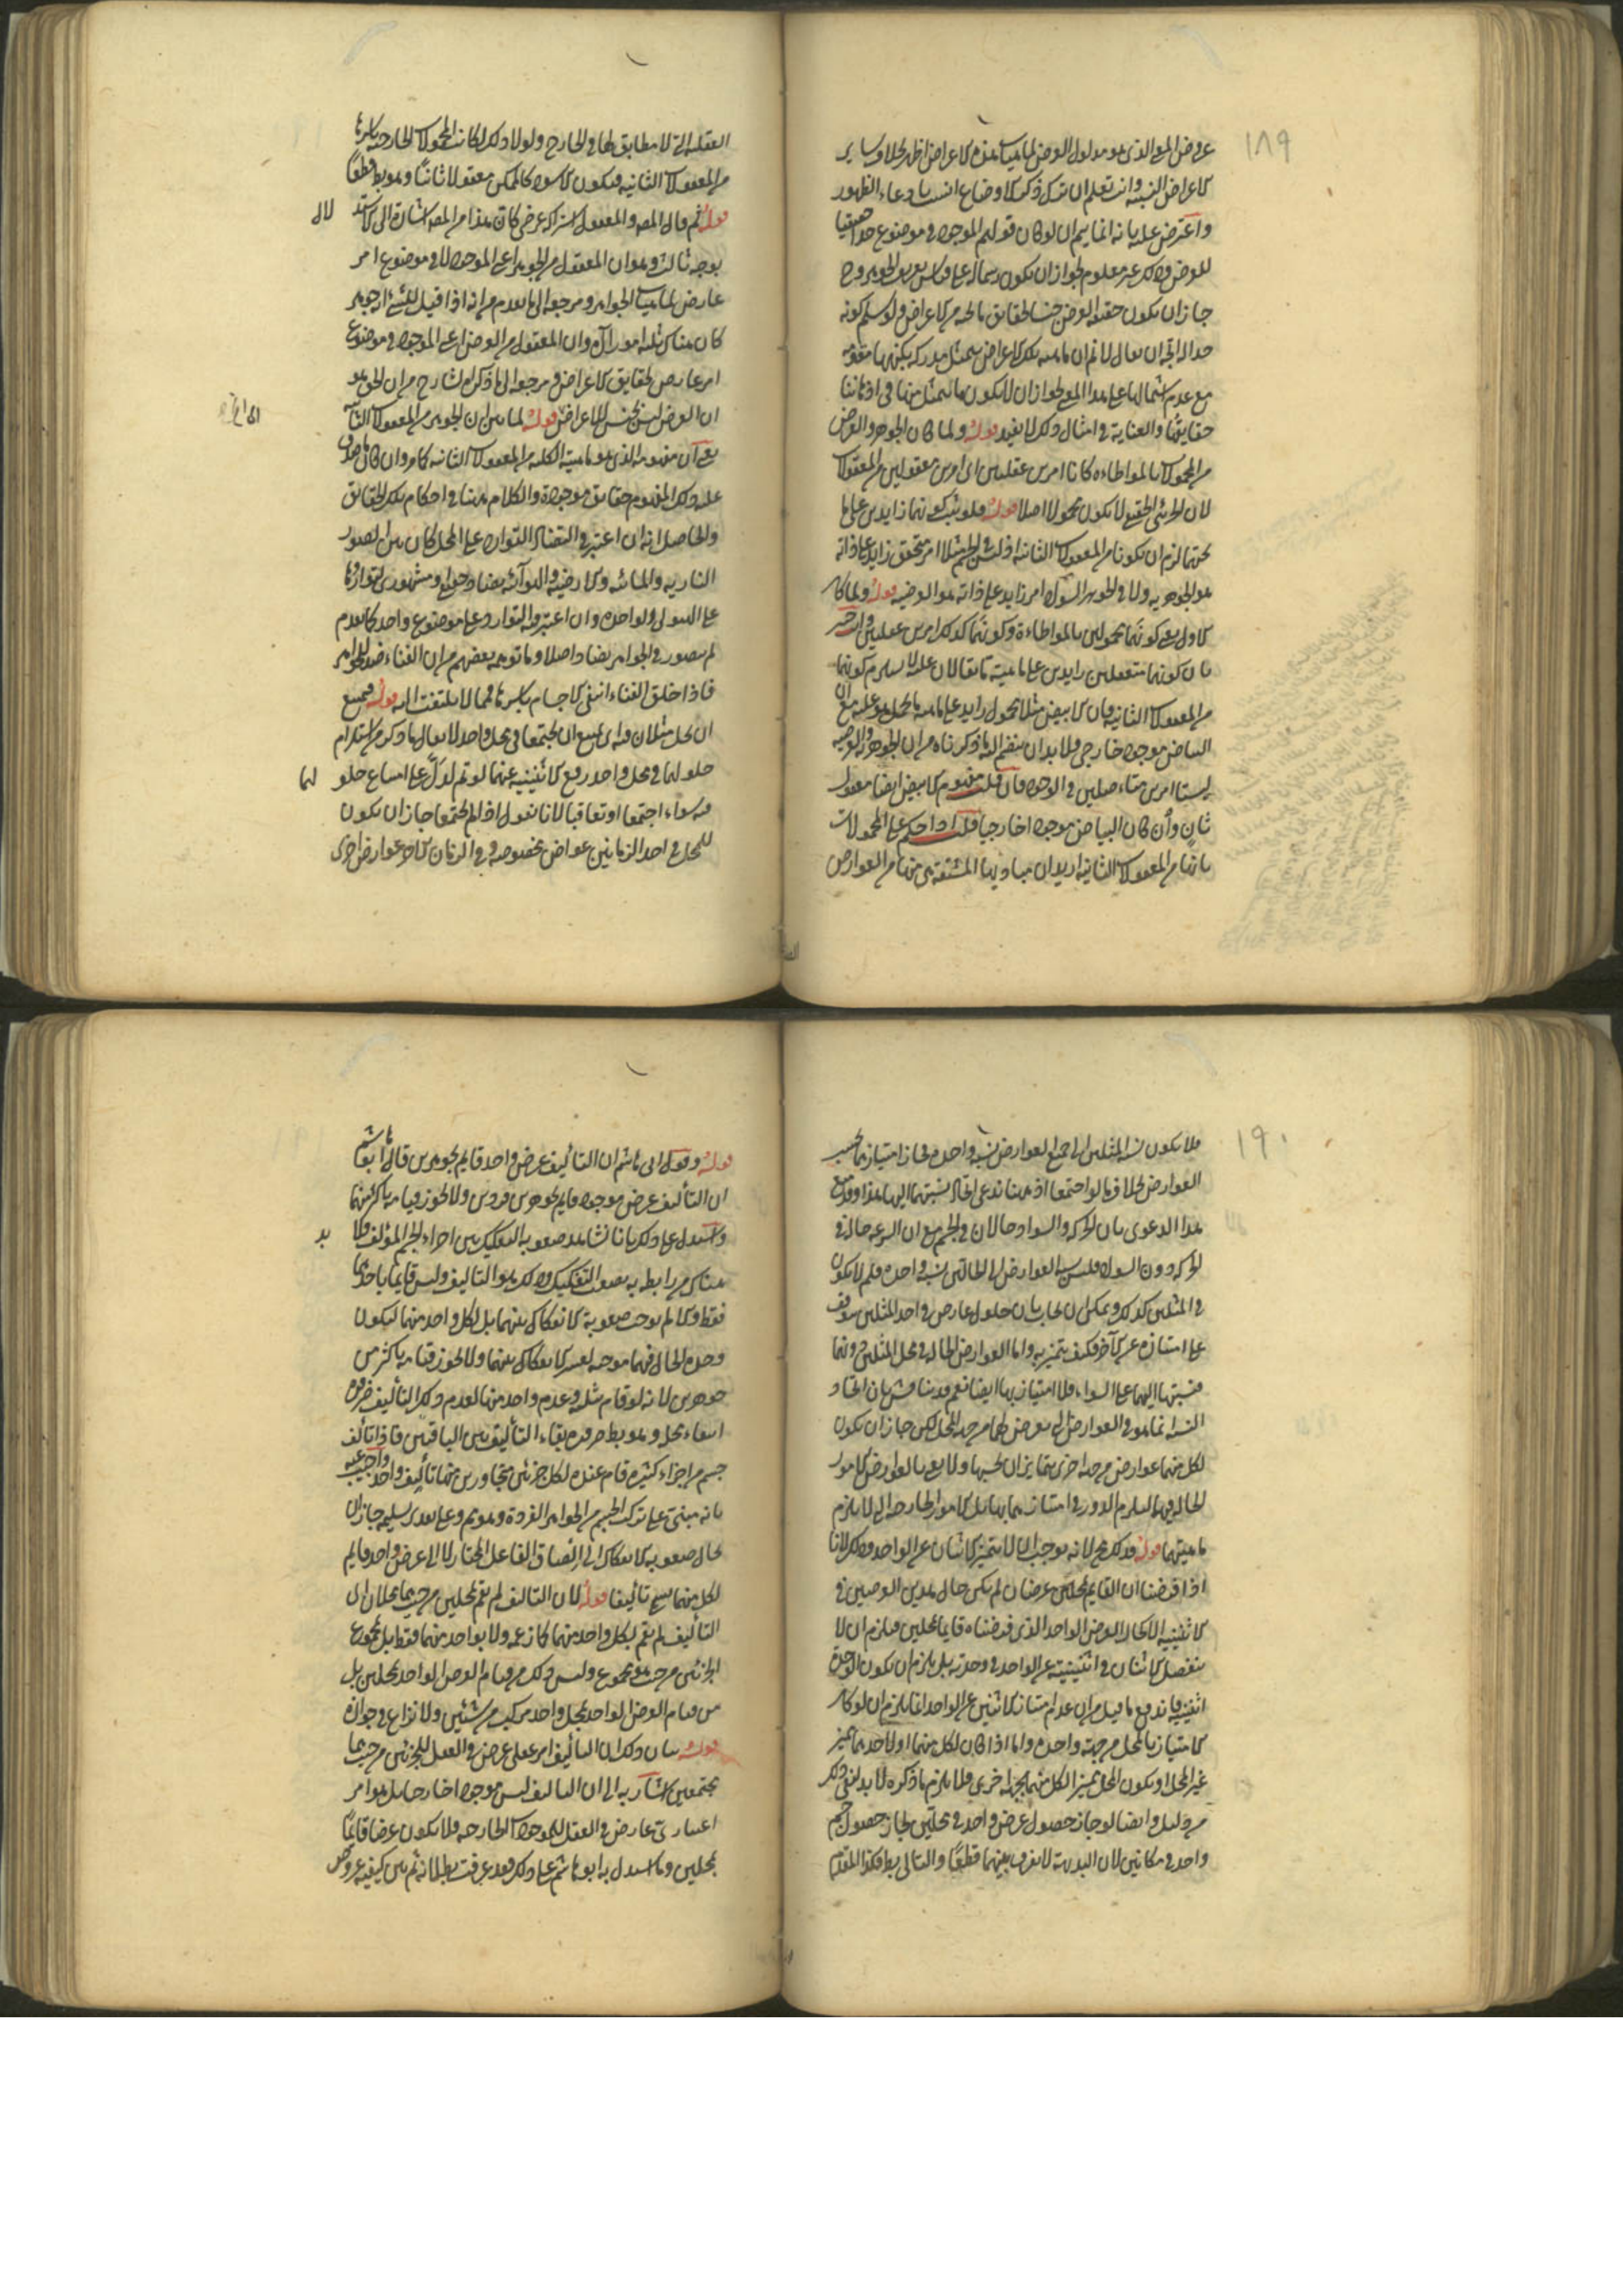 ١٨٩
عروض المعنى الذى هو مدلول العرض لماهيات هذه الاعراض اظهر بخلاف ساير
الاعراض النسبية وانت تعلم ان ترك ذكر الاوضاع انسب بادعاء الظهور
واعترض عليه بانه انما يتم ان لو كان قولهم الموجود فى موضوع حدا حقيقيا
للعرض وذلك غير معلوم لجواز ان يكون رسما له على قياس تعريف الجوهر وح
جاز ان يكون حقيقة العرض جنسا لحقايق ما تحته من الاعراض ولو سلم كونه
حدا له اتجه ان يقال لا نم ان ماهية تلك الاعراض يتمثل مدركة بكنهها متقومة
مع عدم اشتمالها على هذا المعنى لجواز ان لا يكون ما يتمثل منها فى اذهاننا
حقايقها والعناية فى امثال ذلك لا يفيد قوله ولما كان الجوهر والعرض
من المحمولات بالمواطاءة كانا امرين عقليين اى امرين معقولين من المعقولات
لان الجزئى الحقيقى لا يكون محمولا اصلا قوله فلو ثبت كونهما زايدين على ما
تحتهما لزم ان يكونا من المعقولات الثانية اذ ليس فى الجسم مثلا امر متحقق زايد على ذاته
هو الجوهرية ولا فى السواد امر زايد على ذاته هو العرضية قوله ولما كان
الاول يعنى كونهما محمولين بالمواطاءة وكونهما كذلك امرين عقليين
بان كونهما متعقلين زايدين على ماهية ما يقالان عليه لا يستلزم كونهما
من المعقولات الثانية فان الابيض مثلا محمول زايد على ماهية ما يحمل هو عليه مع ان
البياض موجود خارجى فلا بد ان ينضم اليه ما ذكرناه من ان الجوهرية والعرضية
ليستا امرين متاصلين فى الوجود فان قلت مفهوم الابيض ايضا معقول
ثان وان كان البياض موجودا خارجيا قلت اذا حكم على المحمولات
بانها من المعقولات الثانية اريد ان مباديها المشتقة هى منها من العوارض
العقلية التى لا مطابق لها فى الخارج ولولا ذلك لكانت المحمولات الخارجية باسرها
من المعقولات الثانية فيكون الاسود كالممكن معقولا ثانيا وهو بط قطعا
قوله ثم قال المصـ والمعقول اشتراكه عرضى كان هذا من المصـ اشارة الى الاستد
لال
بوجه ثالث وهو ان المعقول من الجوهر اعنى الموجود لا فى موضوع امر
عارض لماهيات الجواهر ومرجعه الى ما تقدم من انه اذا قيل للشئ انه جوهر
كان هناك ثلثة امور آه وان المعقول من العرض اعنى الموجود فى موضوع
امر عارض لحقايق الاعراض ومرجعه الى ما ذكره الشارح من ان الحق هو
ان العرض ليس بجنس للاعراض قوله لما بين ان الجوهر من المعقولات الثانية
يعنى ان مفهومه الذى هو ماهيته الكلية من المعقولات الثانية كما مر وان كان ما صدق
عليه ذلك المفهوم حقايق موجودة والكلام هٰهنا فى احكام تلك الحقايق
والحاصل انه ان اعتبر فى التضاد التوارد على المحل كان بين الصور
النارية والمائية والارضية والهوائية تضاد وتواردها
على الهيولى الواحدة وان اعتبر فيه التوارد على موضوع واحد كما تقدم
لم يتصور فى الجواهر تضاد اصلا وما توهمه بعضهم من ان الفناء ضد للجواهر
فاذا خلق الفناء انتفى الاجسام باسرها فمما لا يلتفت اليه قوله فيمتنع
ان يحل مثلان فيه اى يمتنع ان يجتمعا فى محل واحد لا يقال ما ذكره من استلزام
حلولهما فى محل واحد رفع الاثنينية عنهما لو تم لدل على امتناع حلو
لهما
فيه سواء اجتمعا او تعاقبا لانا نقول اذا لم يجتمعا جاز ان يكون
للمحل فى احد الزمانين عوارض مخصوصة وفى الزمان الآخر عوارض اخرى
١٩٠
فلا يكون نسبة المثلين الى جميع العوارض نسبة واحدة فجاز امتيازهما بحسب
العوارض بخلاف ما لو اجتمعا اذ هٰهنا ندعى اتحاد نسبتهما اليها هذا وقد منع
هذا الدعوى بان الحركة والسواد حالان فى الجسم مع ان السرعة حالة فى
الحركة دون السواد فليس نسبة العوارض الى الحالتين نسبة واحدة فلم لا يكون
فى المثلين كذلك ويمكن ان يجاب بان حلول عارض فى احد المثلين يتوقف
على امتيازه عن الآخر فكيف يتميز به واما العوارض الحالة فى محل المثلين دونهما
فنسبتها اليهما على السواء فلا امتياز بها ايضا نعم قد يناقش بان اتحاد
النسبة انما هو فى العوارض التى يعرض لهما من جهة المحل لكن جاز ان يكون
لكل منهما عوارض من جهة اخرى يتمايزان بحسبها ولا يعنى بالعوارض الامور
الحالة فيهما ليلزم الدور فى امتيازهما بها بل الامور الخارجة التى لا يلزم
ماهيتهما قوله وذلك مح لانه يوجب ان لا يتميز الاثنان عن الواحد وذلك لانا
اذا فرضنا ان القايم بمحلين عرضان لم يكن حال هذين العرضين فى
الاثنينية الا كحال العرض الواحد الذى فرضناه قايما بمحلين فيلزم ان لا
ينفصل الاثنان فى اثنينيته عن الواحد فى وحدته بل يلزم ان يكون الوحدة
اثنينية فاندفع ما قيل من ان عدم امتياز الاثنين عن الواحد انما يلزم ان لو كان
الامتياز بالمحل من جهة واحدة واما اذا كان لكل منهما او لاحدهما مميز
غير المحل او يكون المحل مميزا لكل منهما بجهة اخرى فلا يلزم ما ذكره لا بد لنفى ذلك
من دليل وايضا لو جاز حصول عرض واحد فى محلين لجاز حصول جسم
واحد فى مكانين لان البديهة لا يفرق بينهما قطعا والتالى بط فكذا المقدم
قوله وقول ابى هاشم ان التأليف عرض واحد قايم بجوهرين قال ابو هاشم
ان التأليف عرض موجود قايم بجوهرين فردين ولا يجوز قيامه باكثر منهما
واستدل على ذلك بانا نشاهد صعوبة التفكيك بين اجزاء الجسم المؤلف فلا
بد
هناك من رابطة بها يصعب التفكيك وذلك هو التاليف وليس قايما باحدهما
فقط والا لم يوجب صعوبة الانفكاك بينهما بل لكل واحد منهما ليكون
وحدة الحال فيهما موجبة لعسر الانفكاك بينهما ولا يجوز قيامه باكثر من
جوهرين لانه لو قام بثلثة وعدم واحد منها لعدم ذلك التأليف ضرورة
انتفاء محله وهو بط ضرورة بقاء التأليف بين الباقيين فاذا تألف
جسم من اجزاء كثيرة قام عنده لكل جزئين متجاورين منها تأليف واحد واجيب عنه
بانه مبنى على تركب الجسم من الجواهر الفردة وهو مم وعلى تقدير تسليمه جاز ان
يحال صعوبة الانفكاك الى الصاق الفاعل المختار لا الى عرض واحد قايم
لكل منهما يسمى تأليفا قوله لان التاليف لم يقم بمحلين من حيث هما محلان اى
التأليف لم يقم بكل واحد منهما كما زعمه ولا بواحد منهما فقط بل بمجموع
الجزئين من حيث هو مجموع وليس ذلك من قيام العرض الواحد بمحلين بل
من قيام العرض الواحد بمحل واحد مركب من شيئين ولا نزاع فى جوازه
قوله بيان ذلك ان التأليف امر عقلى عرض فى العقل للجزئين من حيث هما
مجتمعين اشار به الى ان التاليف ليس موجودا خارجيا بل هو امر
اعتبارى عارض فى العقل للموجودات الخارجية فلا يكون عرضا قائما
بمحلين وما استدل به ابو هاشم على ذلك فقد عرفت بطلانه ثم بين كيفية عروض